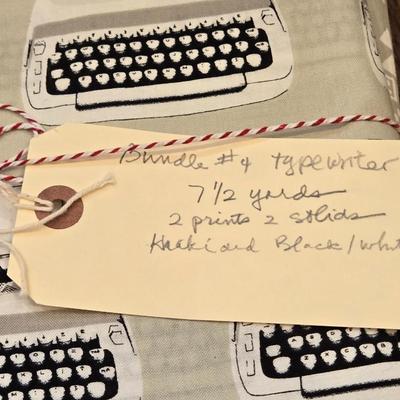 Bundle #4 typewriter
7 1/2 yards
2 prints 2 solids
Khaki and Black/whit